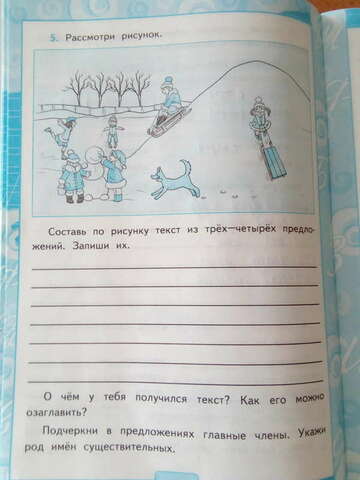 5. Рассмотри рисунок.
Составь по рисунку текст из трёх—четырёх предло-
жений. Запиши их.
О чём у тебя получился текст? Как его можно
озаглавить?
Подчеркни в предложениях главные члены. Укажи
род имён существительных.